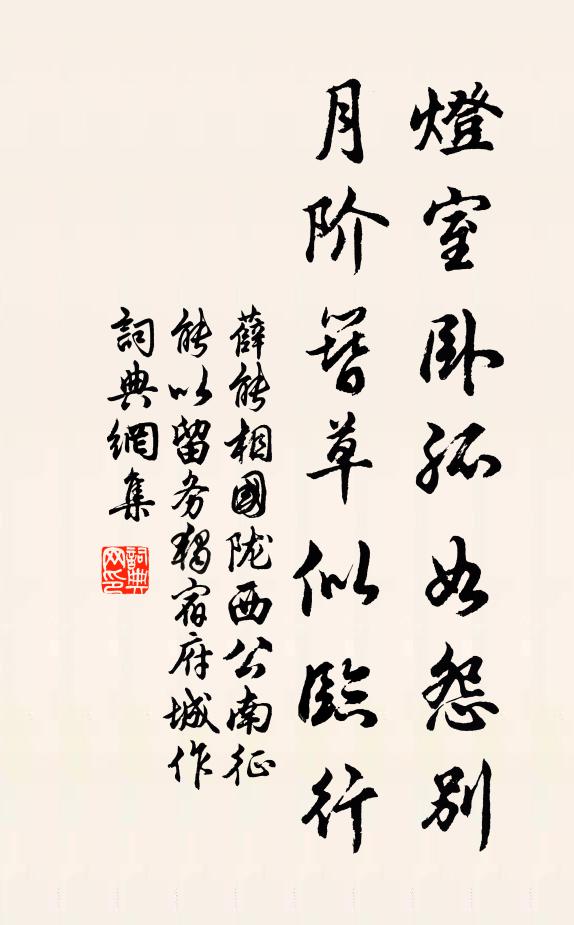 燈室卧孤如怨别
月阶簪草似臨行
薛能相國陇西公南征
能以留务獨宿府城作
詞典網集
詞典网印